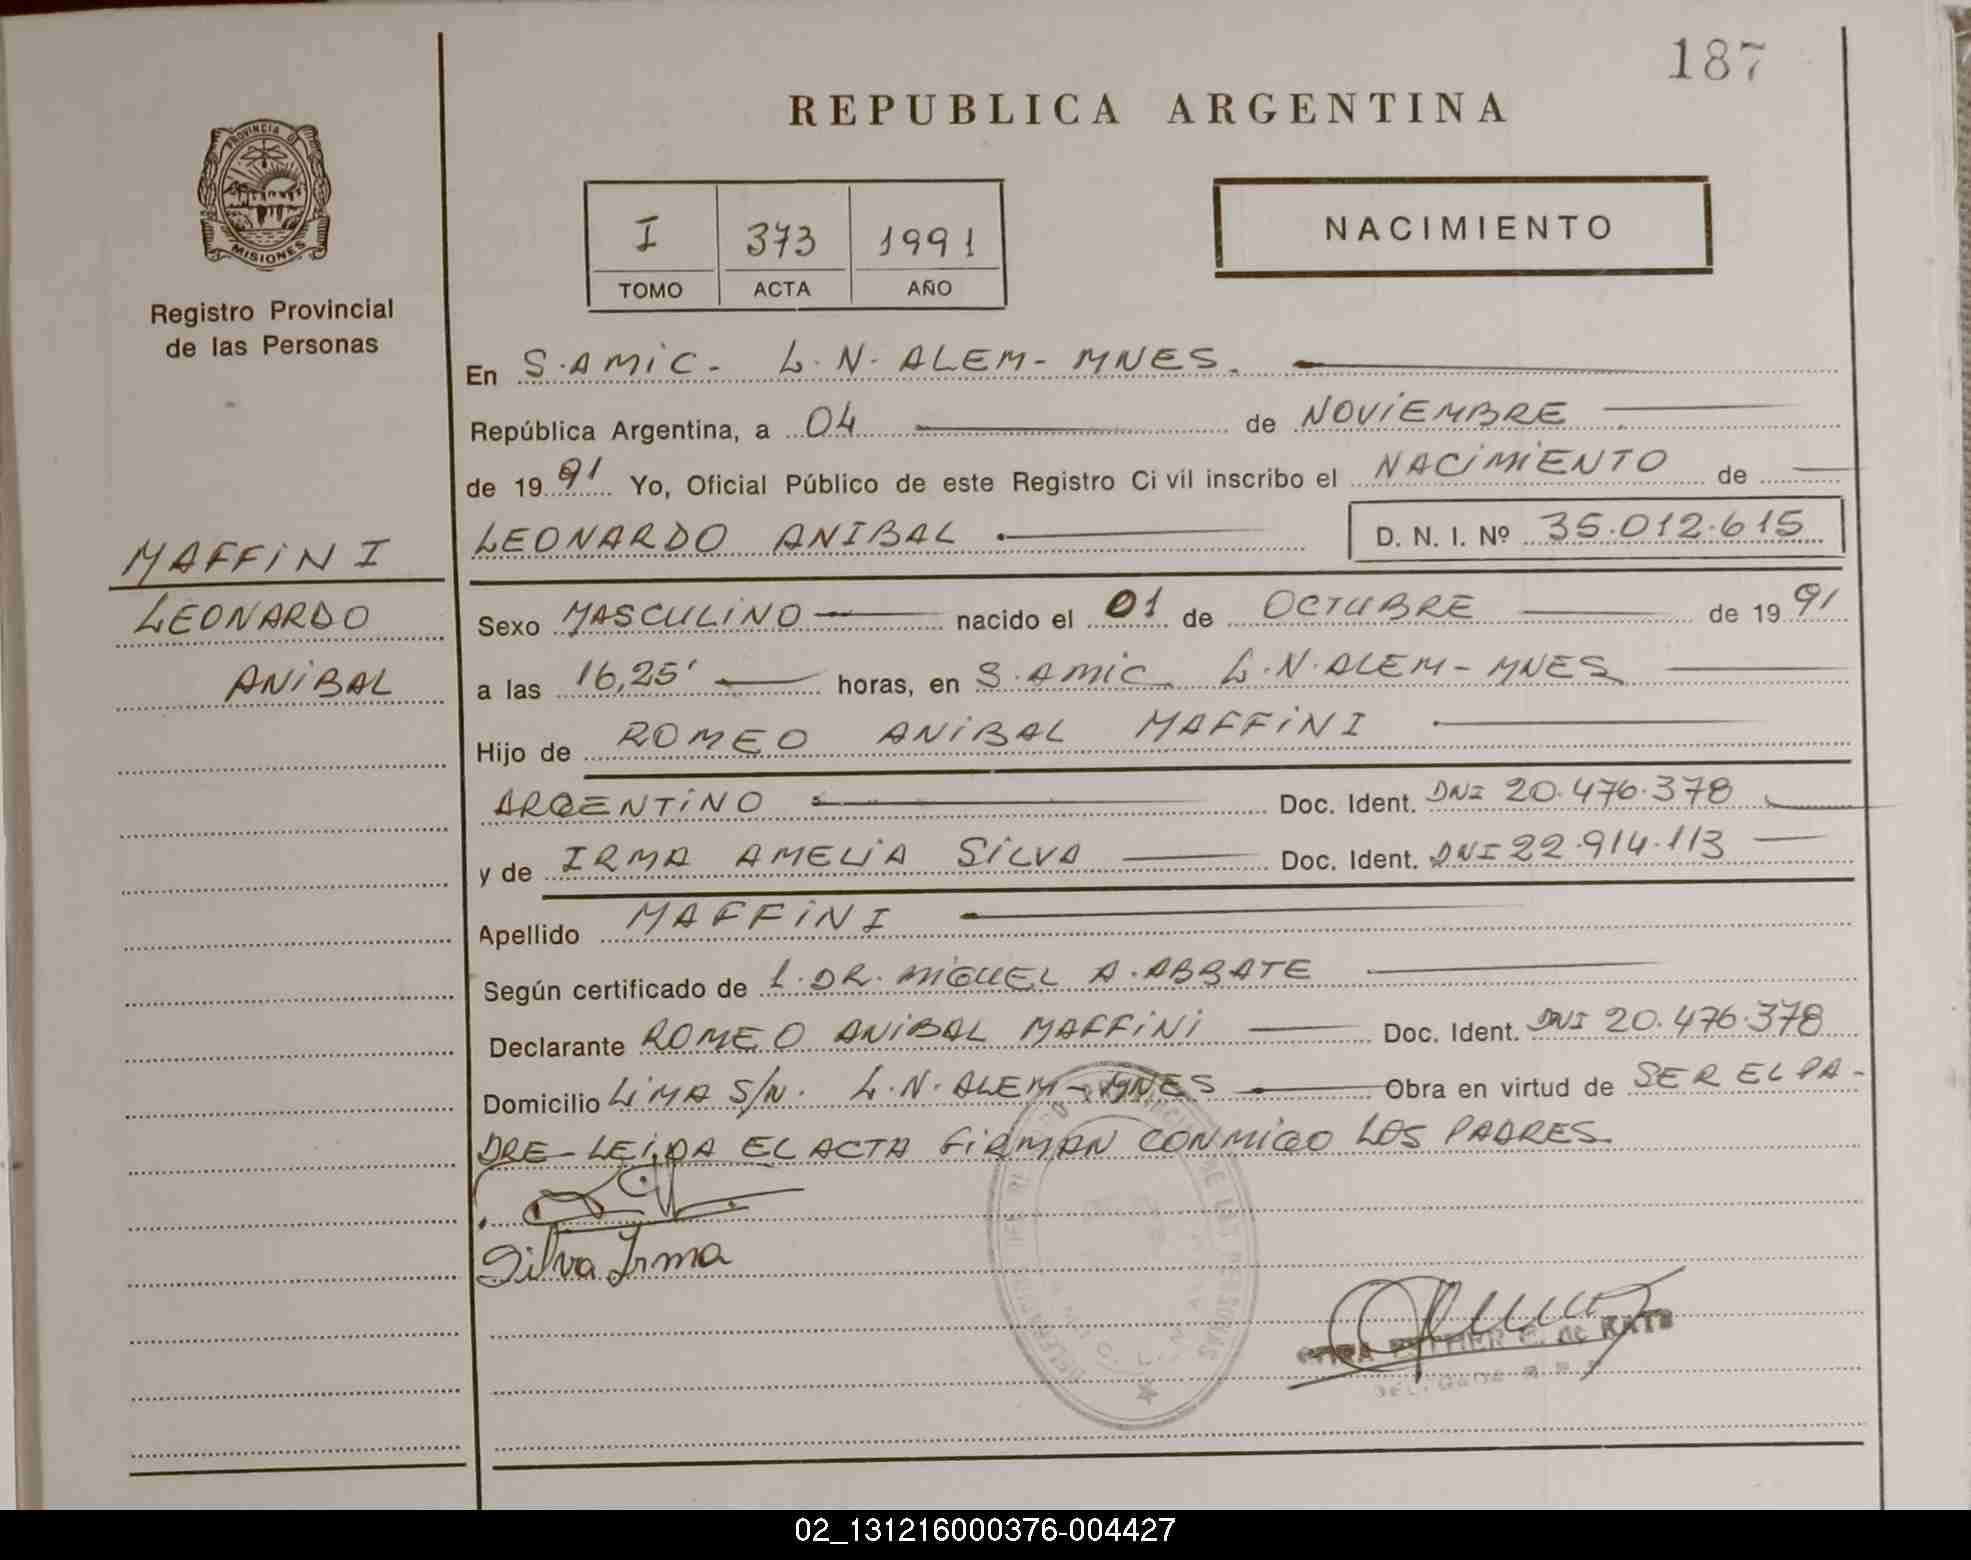 187
REPUBLICA ARGENTINA
PROVINCIA DE
MISIONES
Registro Provincial
de las Personas
I 373 1991
TOMO ACTA AÑO
NACIMIENTO
En S. AMIC - L. N. ALEM - MNES.
República Argentina, a 04 de NOVIEMBRE
de 19 91 Yo, Oficial Público de este Registro Ci vil inscribo el NACIMIENTO de
LEONARDO ANIBAL D. N. I. Nº 35.012.615
MAFFINI
LEONARDO
ANIBAL
Sexo MASCULINO nacido el 01 de OCTUBRE de 19 91
a las 16,25' horas, en S. AMIC L. N. ALEM - MNES
Hijo de ROMEO ANIBAL MAFFINI
ARGENTINO Doc. Ident. DNI 20.476.378
y de IRMA AMELIA SILVA Doc. Ident. DNI 22.914.113
Apellido MAFFINI
Según certificado de 1. DR. MIGUEL A. ABBATE
Declarante ROMEO ANIBAL MAFFINI Doc. Ident. DNI 20.476.378
Domicilio LIMA S/N. L. N. ALEM - MNES Obra en virtud de SER EL PA-
DRE - LEIDA EL ACTA FIRMAN CONMIGO LOS PADRES.
Silva Irma
DE LAS PERSONAS
ESTHER E. de
02_131216000376-004427